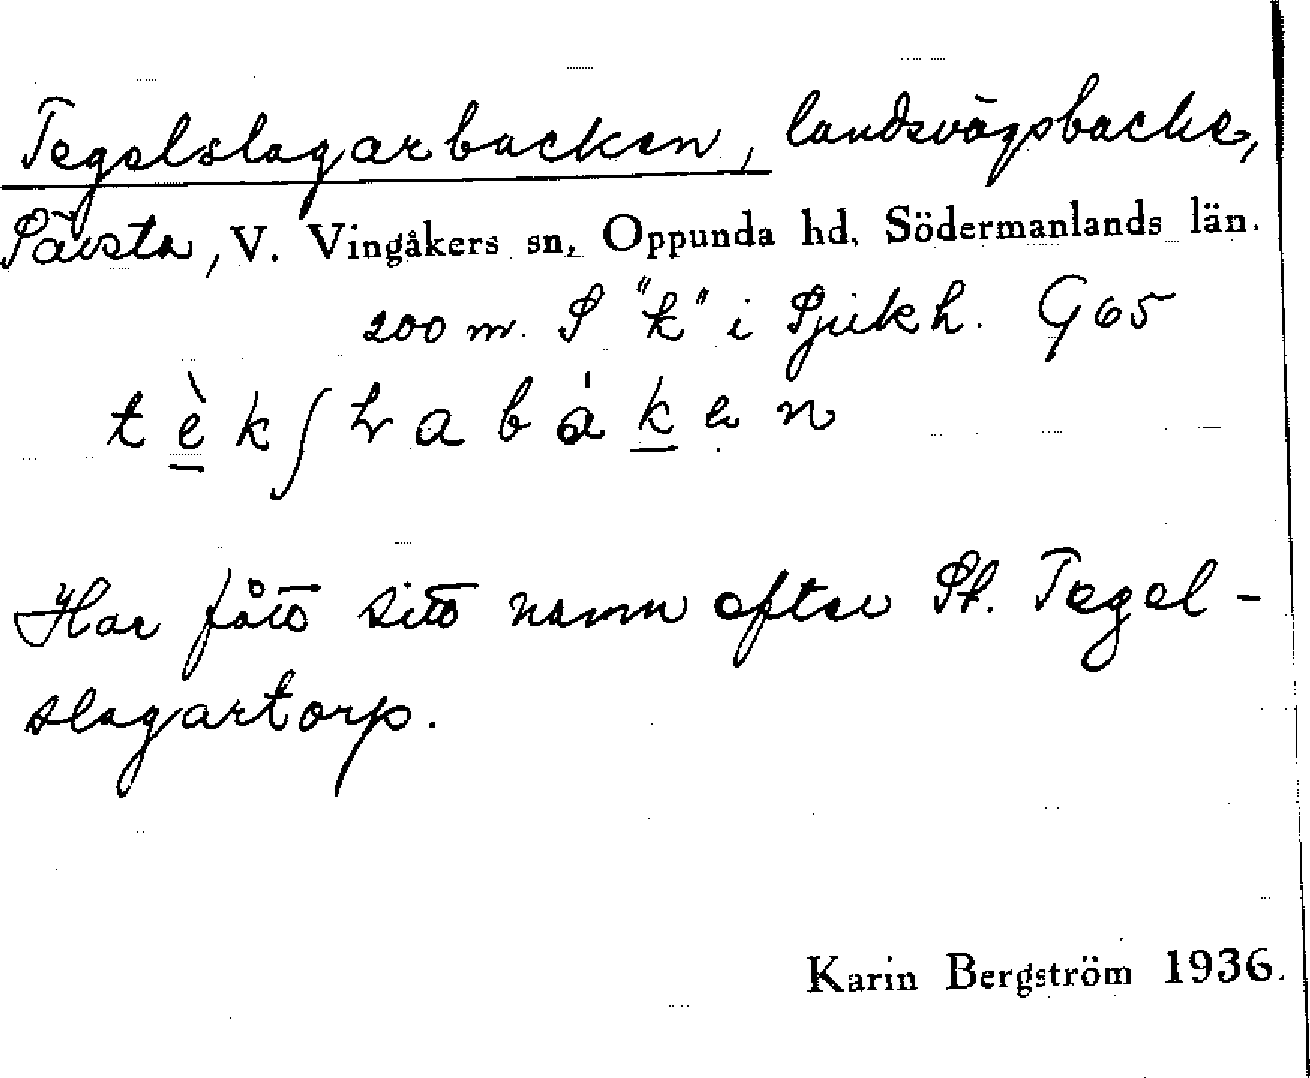 Tegelslagarbacken, landsvägsbacke,
Sävsta, V. Vingåkers sn, Oppunda hd, Södermanlands län.
200 m. S "k" i Sjukh. G65
tèkʃlrabáken
Har fått sitt namn efter St. Tegel-
slagartorp.
Karin Bergström 1936.